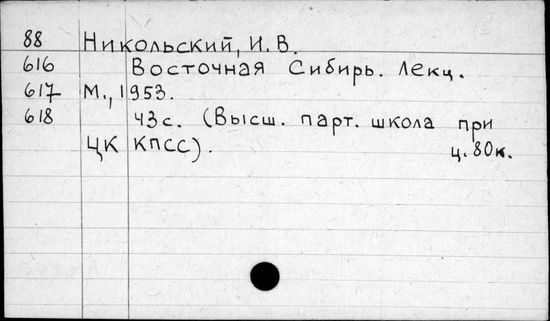 88 Никольский, И. В.
616 Восточная Сибирь. Лекц.
617 М., 1953.
618 43 с. (Высш. парт. школа при
ЦК КПСС). ц. 80к.